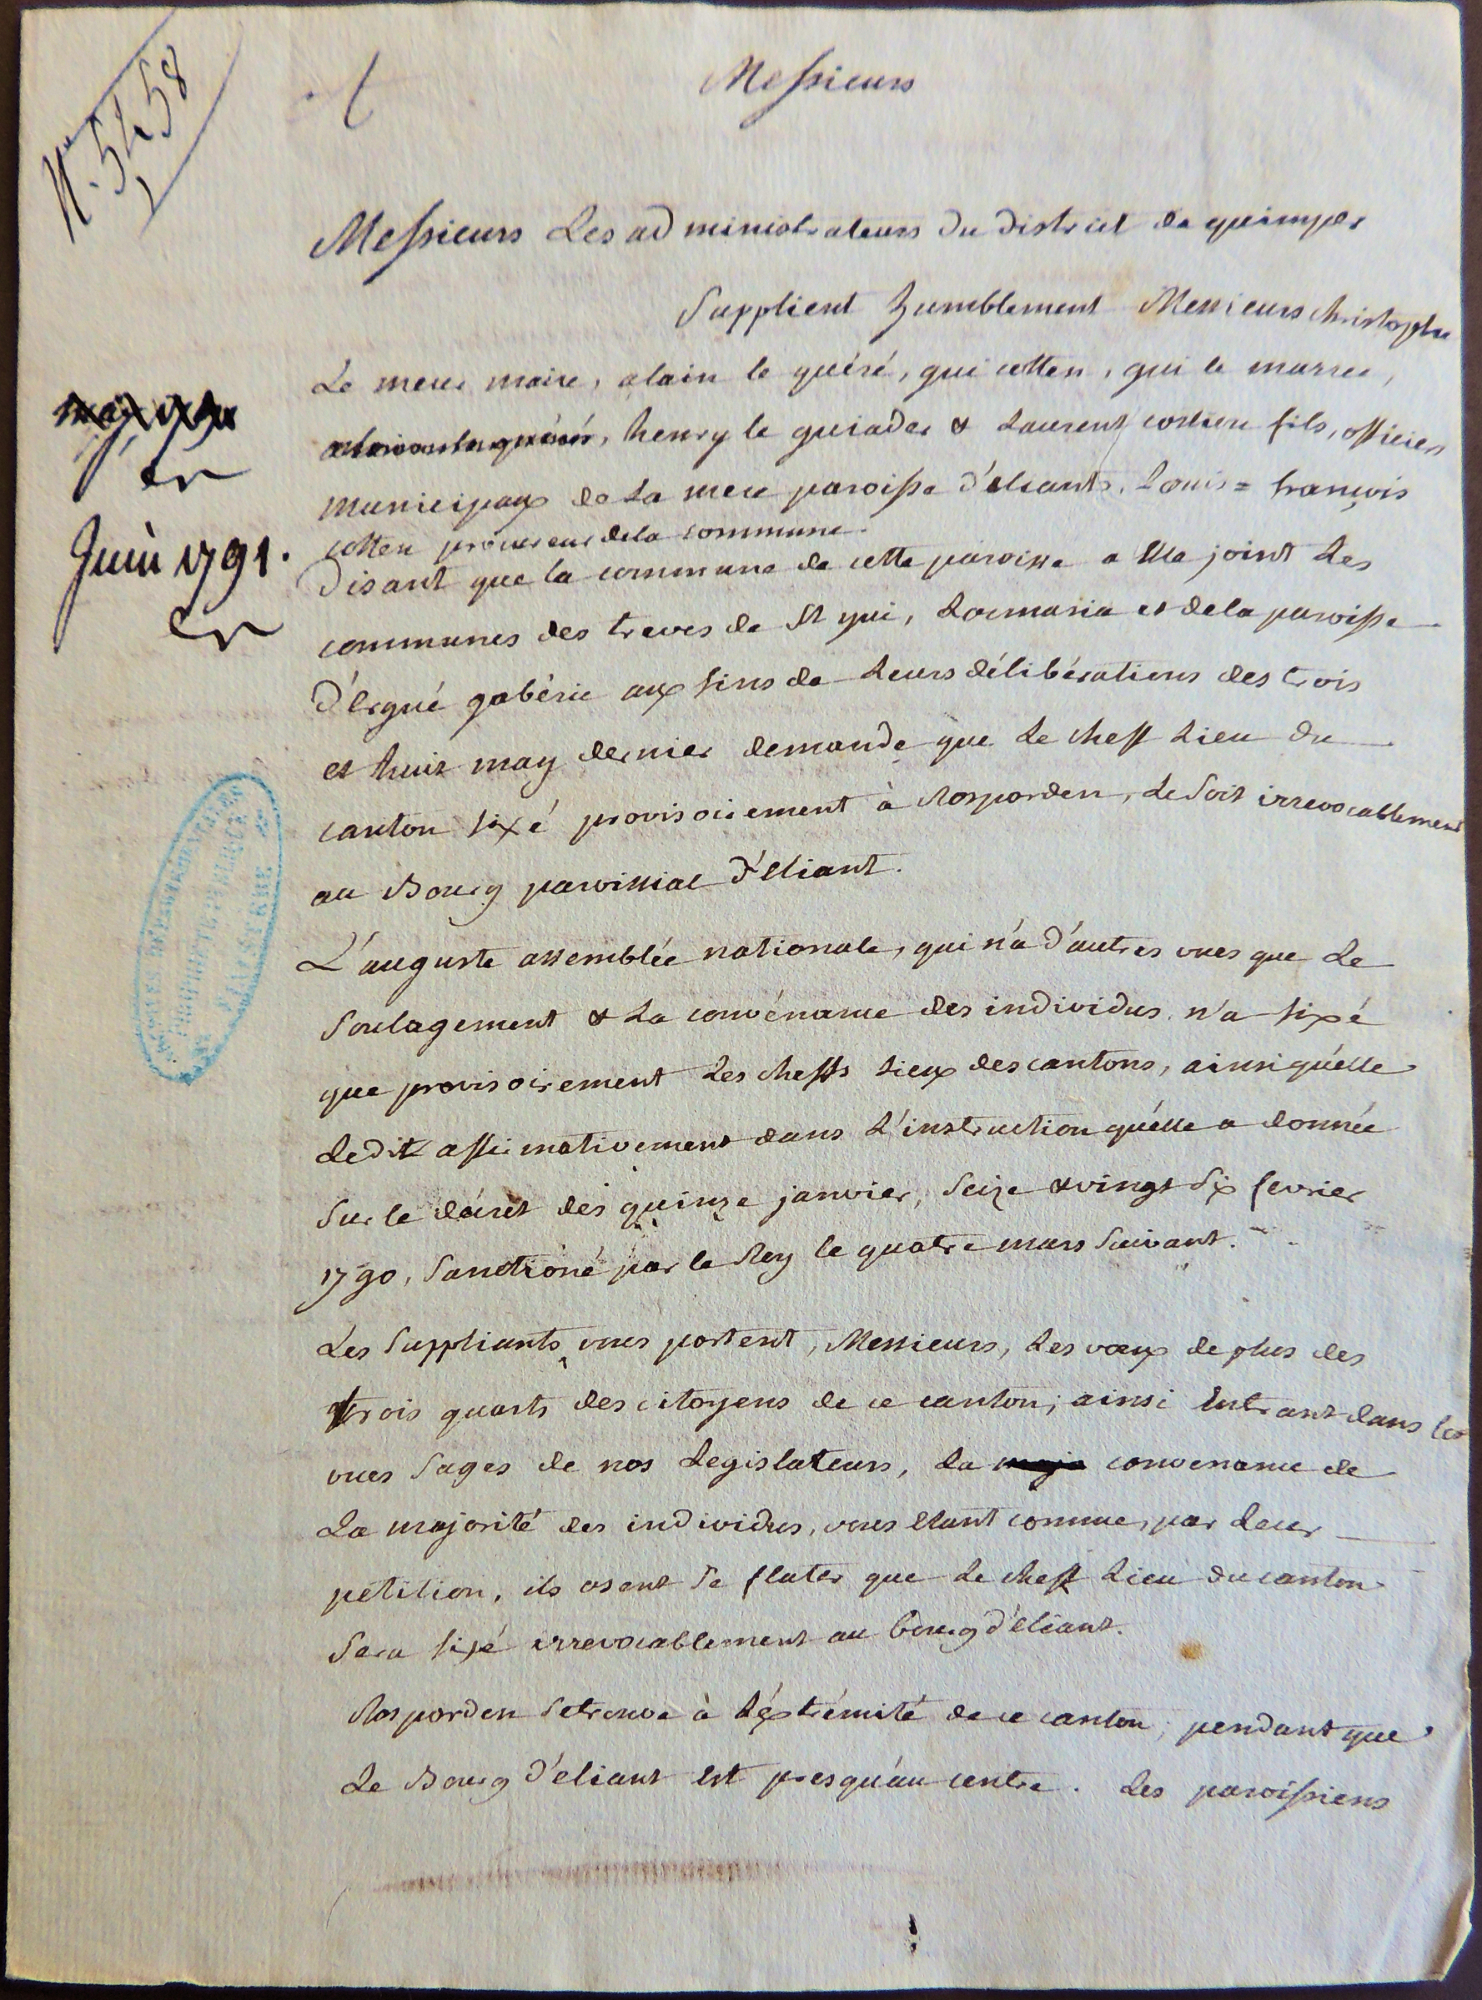 N. 5458
Messieurs
Messieurs Les administrateurs du district de quimper
Supplient humblement Messieurs christophe
Le meur maire, alain le guéré, gui cotten, gui le marrec,
henry le guiader & Laurent fils, officiers
municipaux de La mere paroisse d'eliant, Louis = françois
cotten procureur de la commune.
Juin 1791.
Disant que la commune de cette paroisse a Elle joint Les
communes des treves de St yvi, Locmaria et de la paroisse
d'érgué gabéric aux fins de Leurs délibérations des trois
et huit may dernier demande que Le cheff Lieu du
canton fixé provisoirement à Rosporden, Le soit irrevocablement
au Bourg paroissial d'Eliant.
ARCHIVES DÉPARTEMENTALES
PROPRIÉTÉ PUBLIQUE
FINISTERE
L'auguste assemblée nationale, qui n'a d'autres vues que Le
Soulagement & La convénance des individus n'a fixé
que provisoirement Les cheffs Lieux des cantons, ainsi qu'élle
Le dit affirmativement dans L'instruction qu'élle a donnée
Sur le décrèt des quinze janvier, Seize & vingt Six fevrier
1790, Sanctioné par le Roy le quatre mars Suivant.
Les Suppliants vous portent, Messieurs, Les voeux de plus des
trois quarts des citoyens de ce canton; ainsi Entrant dans les
vues Sages de nos Legislateurs, La convenance de
La majorité des individus, vous étant connue, par Leur
pétition, ils osent Se flater que Le cheff Lieu du canton
Sera fixé irrevocablement au bourg d'éliant.
Rosporden Se trouve à L'éxtrémité de ce canton, pendant que
Le Bourg d'éliant Est presqu'au centre. Les paroissiens